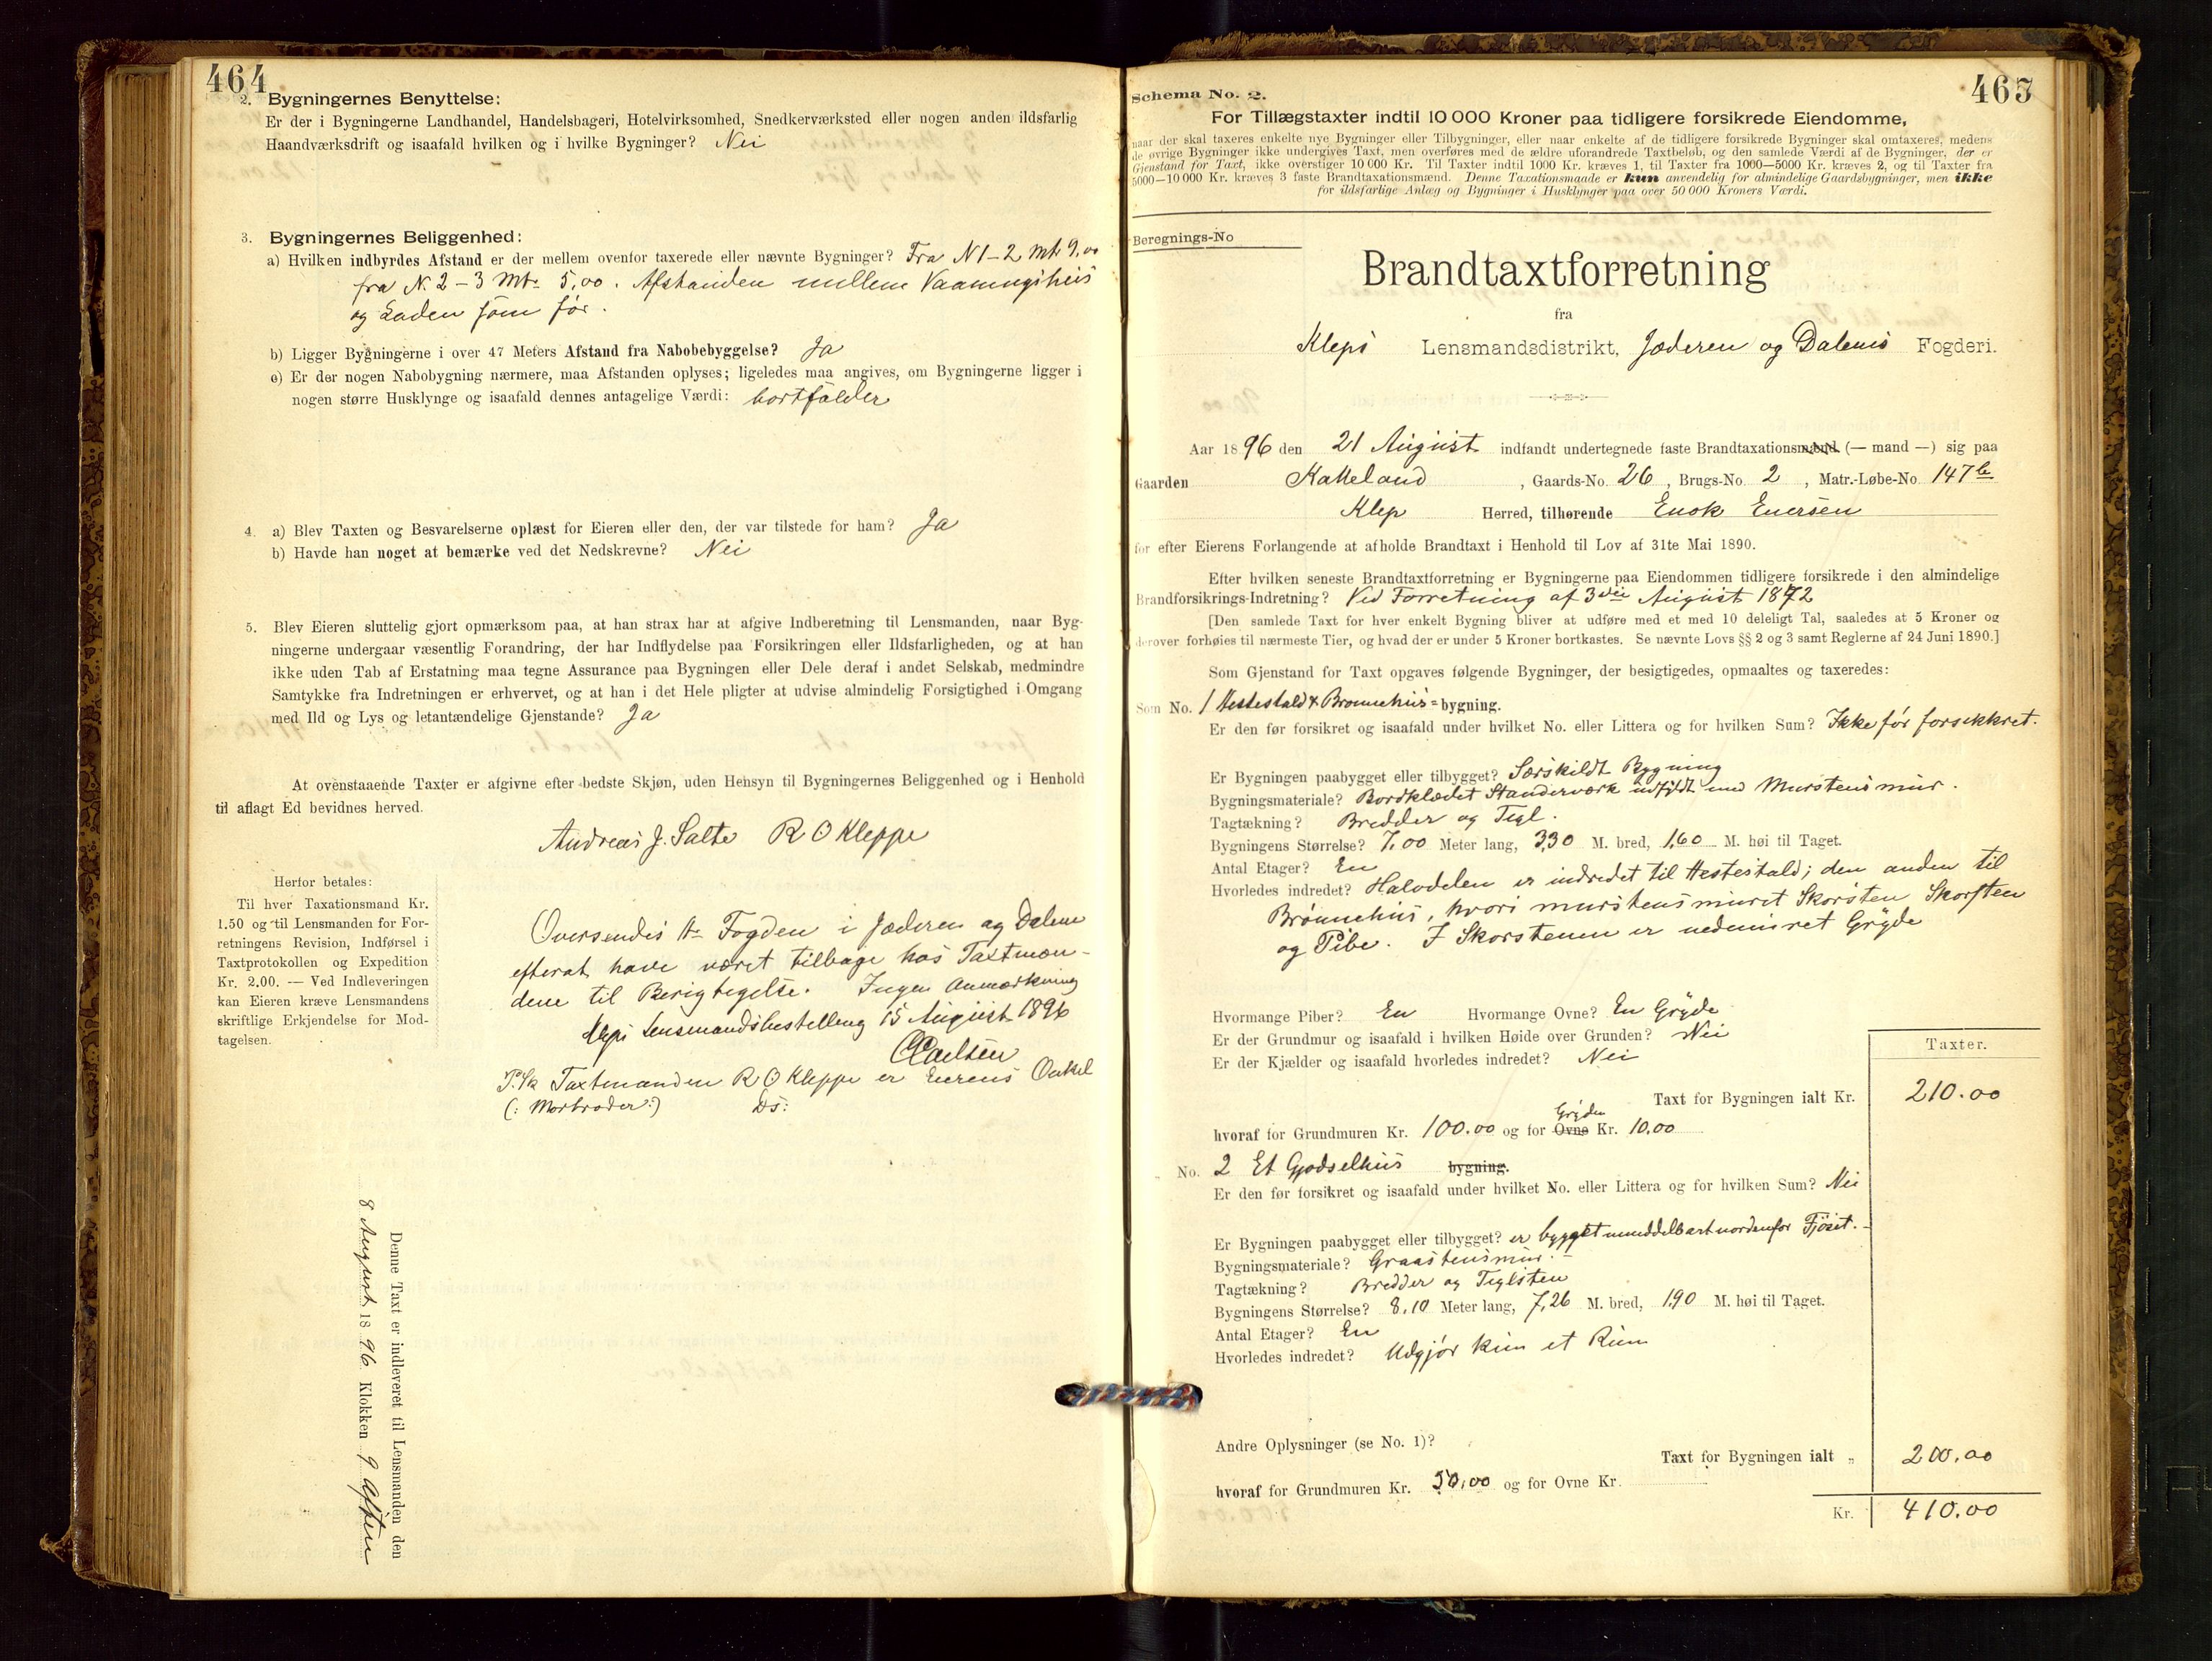 464
2. Bygningernes Benyttelse:
Er der i Bygningerne Landhandel, Handelsbageri, Hotelvirksomhed, Snedkerværksted eller nogen anden ildsfarlig
Haandværksdrift og isaafald hvilken og i hvilke Bygninger? Nei
3. Bygningernes Beliggenhed:
a) Hvilken indbyrdes Afstand er der mellem ovenfor taxerede eller nævnte Bygninger? Fra N 1–2 Mtr 9,00
fra N. 2–3 Mtr 5,00. Afstanden mellem Vaaningshus
og Laden som før.
b) Ligger Bygningerne i over 47 Meters Afstand fra Nabobebyggelse? Ja
c) Er der nogen Nabobygning nærmere, maa Afstanden oplyses; ligeledes maa angives, om Bygningerne ligger i
nogen større Husklynge og isaafald dennes antagelige Værdi: bortfalder
4. a) Blev Taxten og Besvarelserne oplæst for Eieren eller den, der var tilstede for ham? Ja
b) Havde han noget at bemærke ved det Nedskrevne? Nei
5. Blev Eieren sluttelig gjort opmærksom paa, at han strax har at afgive Indberetning til Lensmanden, naar Byg-
ningerne undergaar væsentlig Forandring, der har Indflydelse paa Forsikringen eller Ildsfarligheden, og at han
ikke uden Tab af Erstatning maa tegne Assurance paa Bygningen eller Dele deraf i andet Selskab, medmindre
Samtykke fra Indretningen er erhvervet, og at han i det Hele pligter at udvise almindelig Forsigtighed i Omgang
med Ild og Lys og letantændelige Gjenstande? Ja
At ovenstaaende Taxter er afgivne efter bedste Skjøn, uden Hensyn til Bygningernes Beliggenhed og i Henhold
til aflagt Ed bevidnes herved.
Andreas J. Salte R O Kleppe
Herfor betales:
Til hver Taxationsmand Kr.
1.50 og til Lensmanden for For-
retningens Revision, Indførsel i
Taxtprotokollen og Expedition
Kr. 2.00. — Ved Indleveringen
kan Eieren kræve Lensmandens
skriftlige Erkjendelse for Mod-
tagelsen.
Oversendes Hr Fogden i Jæderen og Dalene
efterat have været tilbage hos Taxtmæn-
dene til Berigtigelse. Ingen Anmærkning
Kleps Lensmandsbestilling 15 August 1896
P.Sk Taxtmanden R O Kleppe er Eierens Onkel
(: Morbroder:) Ds:
Denne Taxt er indleveret til Lensmanden den
8 August 1896 Klokken 9 Aften
465
Schema No. 2.
For Tillægstaxter indtil 10 000 Kroner paa tidligere forsikrede Eiendomme,
naar der skal taxeres enkelte nye Bygninger eller Tilbygninger, eller naar enkelte af de tidligere forsikrede Bygninger skal omtaxeres, medens
de øvrige Bygninger ikke undergives Taxt, men overføres med de ældre uforandrede Taxtbeløb, og den samlede Værdi af de Bygninger, der er
Gjenstand for Taxt, ikke overstiger 10 000 Kr. Til Taxter indtil 1000 Kr. kræves 1, til Taxter fra 1000—5000 Kr. kræves 2, og til Taxter fra
5000—10 000 Kr. kræves 3 faste Brandtaxationsmænd. Denne Taxationsmaade er kun anvendelig for almindelige Gaardsbygninger, men ikke
for ildsfarlige Anlæg og Bygninger i Husklynger paa over 50 000 Kroners Værdi.
Beregnings-No
Brandtaxtforretning
fra
Kleps Lensmandsdistrikt, Jæderen og Dalenes Fogderi.
Aar 1896 den 21 August indfandt undertegnede faste Brandtaxationsmænd (— mand —) sig paa
Gaarden Kalleland, Gaards-No. 26, Brugs-No. 2, Matr.-Løbe-No. 147b
Klep Herred, tilhørende Enok Enersen
for efter Eierens Forlangende at afholde Brandtaxt i Henhold til Lov af 31te Mai 1890.
Efter hvilken seneste Brandtaxtforretning er Bygningerne paa Eiendommen tidligere forsikrede i den almindelige
Brandforsikrings-Indretning? Ved Forretning af 3die August 1872
[Den samlede Taxt for hver enkelt Bygning bliver at udføre med et med 10 deleligt Tal, saaledes at 5 Kroner og
derover forhøies til nærmeste Tier, og hvad der er under 5 Kroner bortkastes. Se nævnte Lovs §§ 2 og 3 samt Reglerne af 24 Juni 1890.]
Som Gjenstand for Taxt opgaves følgende Bygninger, der besigtigedes, opmaaltes og taxeredes:
Som No. 1 Hestestald & Brønnehus=bygning.
Er den før forsikret og isaafald under hvilket No. eller Littera og for hvilken Sum? Ikke før forsikkret.
Er Bygningen paabygget eller tilbygget? Særskildt Bygning
Bygningsmateriale? Bordklædet Standerværk udfyldt med Murstensmur.
Tagtækning? Bredder og Tegl.
Bygningens Størrelse? 7,00 Meter lang, 3,30 M. bred, 1,60 M. høi til Taget.
Antal Etager? En
Hvorledes indredet? Halvdelen er indredet til Hestestald; den anden til
Brønnehus, hvori murstensmuret Skorsten Skorsten
og Pibe. I Skorstenen er nedmuret Gryde
Hvormange Piber? En Hvormange Ovne? En Gryde
Er der Grundmur og isaafald i hvilken Høide over Grunden? Nei
Er der Kjælder og isaafald hvorledes indredet? Nei
Taxter.
Taxt for Bygningen ialt Kr. 210.00
Gryden
hvoraf for Grundmuren Kr. 100.00 og for Ovne Kr. 10.00
No. 2 Et Gjødselhus bygning.
Er den før forsikret og isaafald under hvilket No. eller Littera og for hvilken Sum? Nei
Er Bygningen paabygget eller tilbygget? er bygget umiddelbart nordenfor Fjøset.
Bygningsmateriale? Graastensmur.
Tagtækning? Bredder og Teglsten
Bygningens Størrelse? 8,10 Meter lang, 7,26 M. bred, 1,90 M. høi til Taget.
Antal Etager? En
Hvorledes indredet? Udgjør kun et Rum
Andre Oplysninger (se No. 1)?
Taxt for Bygningen ialt „ 200,00
hvoraf for Grundmuren Kr. 50,00 og for Ovne Kr.
Kr. 410.00